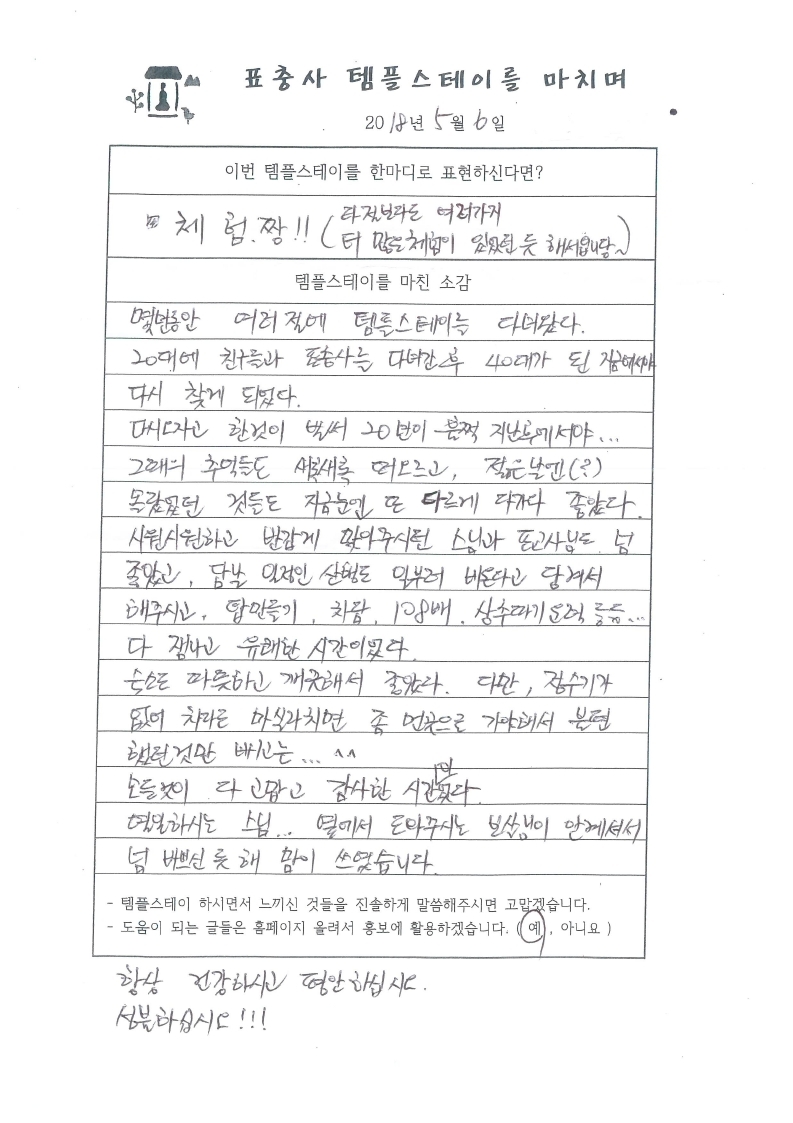 표충사 템플스테이를 마치며
2018년 5월 6일
이번 템플스테이를 한마디로 표현하신다면?
체험.짱!! (타절보다도 여러가지
더 많은 체험이 있었던 듯 해서입니당~)
템플스테이를 마친 소감
몇년동안 여러절에 템플스테이를 다녀왔다.
20대에 친구들과 표충사를 다녀간 후 40대가 된 지금에서야
다시 찾게 되었다.
다시오자고 한것이 벌써 20년이 훌쩍 지난후에서야...
그때의 추억들도 새록새록 떠오르고, 젊은날엔(?)
몰랐었던 것들도 지금눈엔 또 다르게 다가와 좋았다.
시원시원하고 반갑게 맞아주시던 스님과 포교사님도 넘
좋았고, 담날 일정인 산행도 일부러 비온다고 당겨서
해주시고, 탑만들기, 차담, 108배, 상추따기운력 등등...
다 잼나고 유쾌한 시간이었다.
숙소도 따뜻하고 깨끗해서 좋았다. 다만, 정수기가
없어 차라도 마실라치면 좀 먼곳으로 가야해서 불편
했던것만 빼고는... ^^
모든것이 다 고맙고 감사한 시간이었다.
열일하시는 스님... 옆에서 도와주시는 보살님이 안계셔서
넘 바쁘신 듯 해 맘이 쓰였습니다.
- 템플스테이 하시면서 느끼신 것들을 진솔하게 말씀해주시면 고맙겠습니다.
- 도움이 되는 글들은 홈페이지 올려서 홍보에 활용하겠습니다. ( 예 , 아니요 )
항상 건강하시고 평안하십시오.
성불하십시오!!!